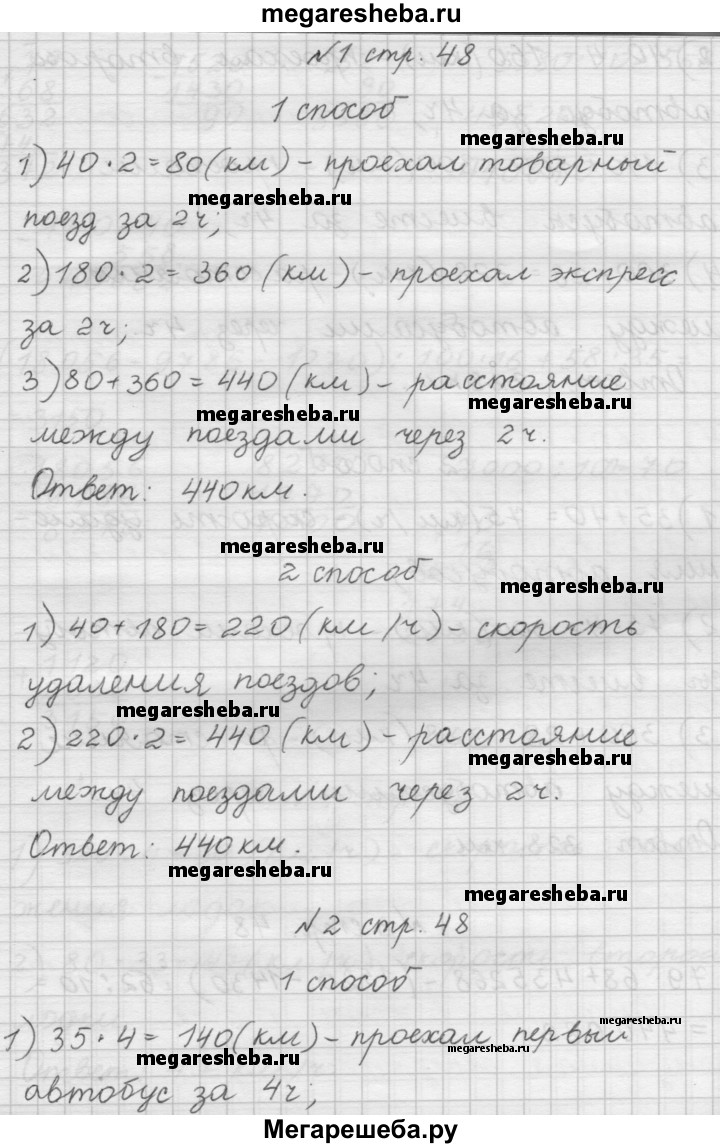 megaresheba.ru
№1 стр. 48
1 способ
megaresheba.ru
1) 40 · 2 = 80 (км) – проехал товарный
megaresheba.ru
поезд за 2ч;
2) 180 · 2 = 360 (км) – проехал экспресс
за 2ч;
3) 80 + 360 = 440 (км) – расстояние
megaresheba.ru
megaresheba.ru
между поездами через 2ч.
Ответ: 440км.
megaresheba.ru
2 способ
megaresheba.ru
1) 40 + 180 = 220 (км/ч) – скорость
удаления поездов;
megaresheba.ru
2) 220 · 2 = 440 (км) – расстояние
megaresheba.ru
между поездами через 2ч.
Ответ: 440км.
megaresheba.ru
megaresheba.ru
№2 стр. 48
1 способ
megaresheba.ru
1) 35 · 4 = 140 (км) – проехал первый
megaresheba.ru
megaresheba.ru
автобус за 4ч;
Мегарешеба.ру